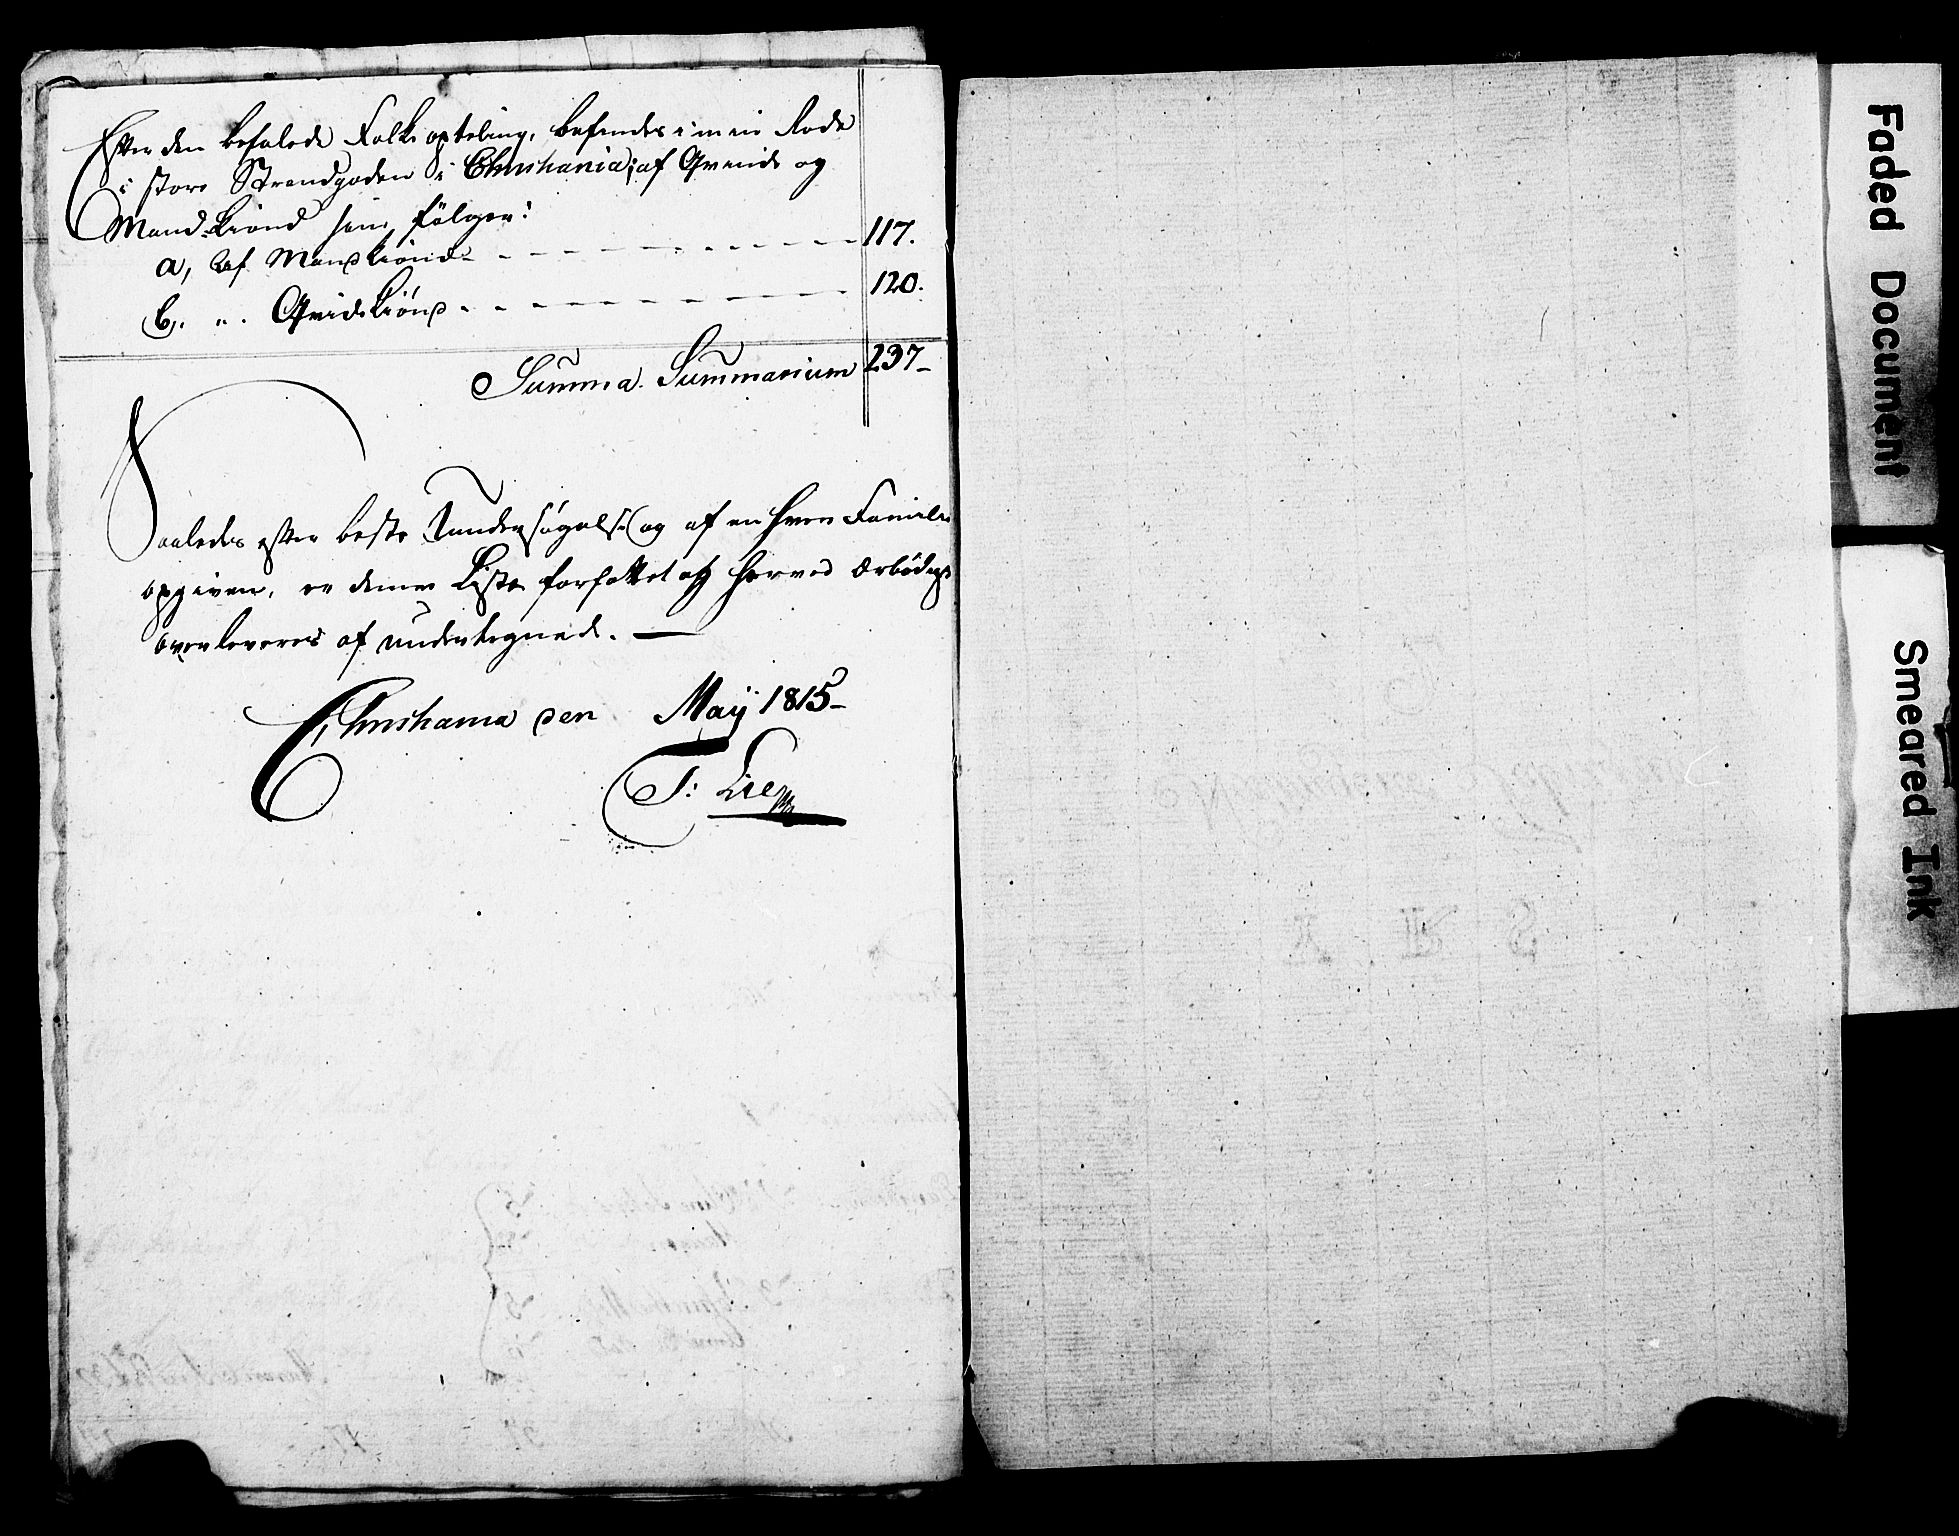 Efter den befalede Folke opteling, befindes i min Rode
i store Strandgaden i Christiania; af Qvinde og
Mand-Kiönd som fölger:
a, Af Mandkiönd - - - - - - 117.
b, „ . Qvindekiönd - - - - - - 120.
Summa Summarium 237-
Saaledes efter beste Undersögelse og af en hver Familie
opgiven, er denne Liste forfattet og herved ærbödigst
overleveres af undertegnede. —
Christiania den May 1815-
T: Lie
Faded Document
Smeared Ink